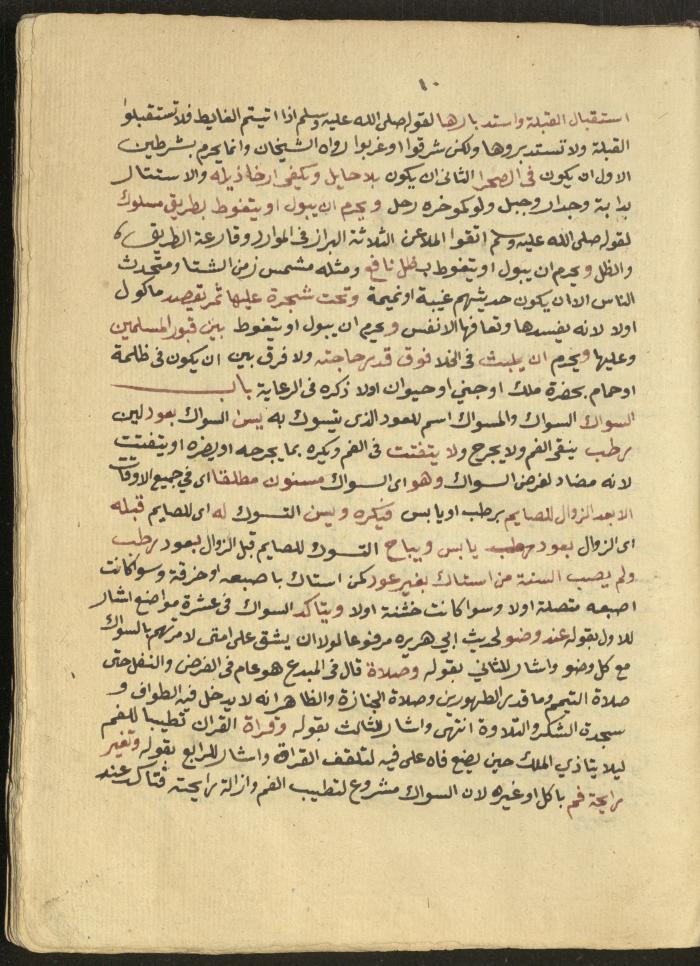 ١٠
استقبال القبلة واستدبارها لقوله صلى الله عليه وسلم اذا اتيتم الغايط فلا تستقبلوا
القبلة ولا تستدبروها ولكن شرقوا او غربوا رواه الشيخان وانما يحرم بشرطين
الاول ان يكون في الصحرا الثاني ان يكون بلا حايل ويكفي ارخا ذيله والاستتار
بدابة وجدار وجبل ولو كموخره رحل ويحرم ان يبول او يتغوط بطريق مسلوك
لقوله صلى الله عليه وسلم اتقوا الملاعن الثلاثة البراز في الموارد وقارعة الطريق
والظل ويحرم ان يبول او يتغوط بظل نافع ومثله مشمس زمن الشتا ومتحدث
الناس الا ان يكون حديثهم غيبة او نميمة وتحت شجرة عليها ثمر يقصد ماكول
اولا لانه يفسدها وتعافها الانفس ويحرم ان يبول او يتغوط بين قبور المسلمين
وعليها ويحرم ان يلبث في الخلا فوق قدر حاجته ولا فرق بين ان يكون في ظلمة
او حمام بحضرة ملك او جني او حيوان اولا ذكره في الرعاية باب
السواك السواك والمسواك اسم للعود الذي يتسوك به يسن السواك بعود لين
رطب ينقي الفم ولا يجرح ولا يتفتت في الفم ويكره بما يجرحه او يضره او يتفتت
لانه مضاد لغرض السواك وهو اي السواك مسنون مطلقا اي في جميع الاوقات
الا بعد الزوال للصايم برطب او يابس فيكره ويسن التسوك له اي للصايم قبله
اي الزوال بعود رطب يابس ويباح التسوك للصايم قبل الزوال بعود رطب
ولم يصب السنة من استاك بغير عود كمن استاك باصبعه او خرقة وسوا كانت
اصبعه متصلة اولا وسوا كانت خشنة اولا ويتاكد السواك في عشرة مواضع اشار
للاول بقوله عند وضو لحديث ابي هريره مرفوعا لولا ان يشق على امتي لامرتهم بالسواك
مع كل وضو واشار للثاني بقوله وصلاة قال في المبدع هو عام في الفرض والنفل حتى
صلاة التيمم وما قدر الطهورين وصلاة الجنازة والظاهر انه لا يدخل فيه الطواف و
سجدة الشكر والتلاوة انتهى واشار للثالث بقوله وقراة القران تطييبا للفم
ليلا يتاذي الملك حين يضع فاه على فيه لتلقف القراة واشار للرابع بقوله وتغير
رايحة فم باكل او غيره لان السواك مشروع لتطييب الفم وازالة رايحته فتاكد عند